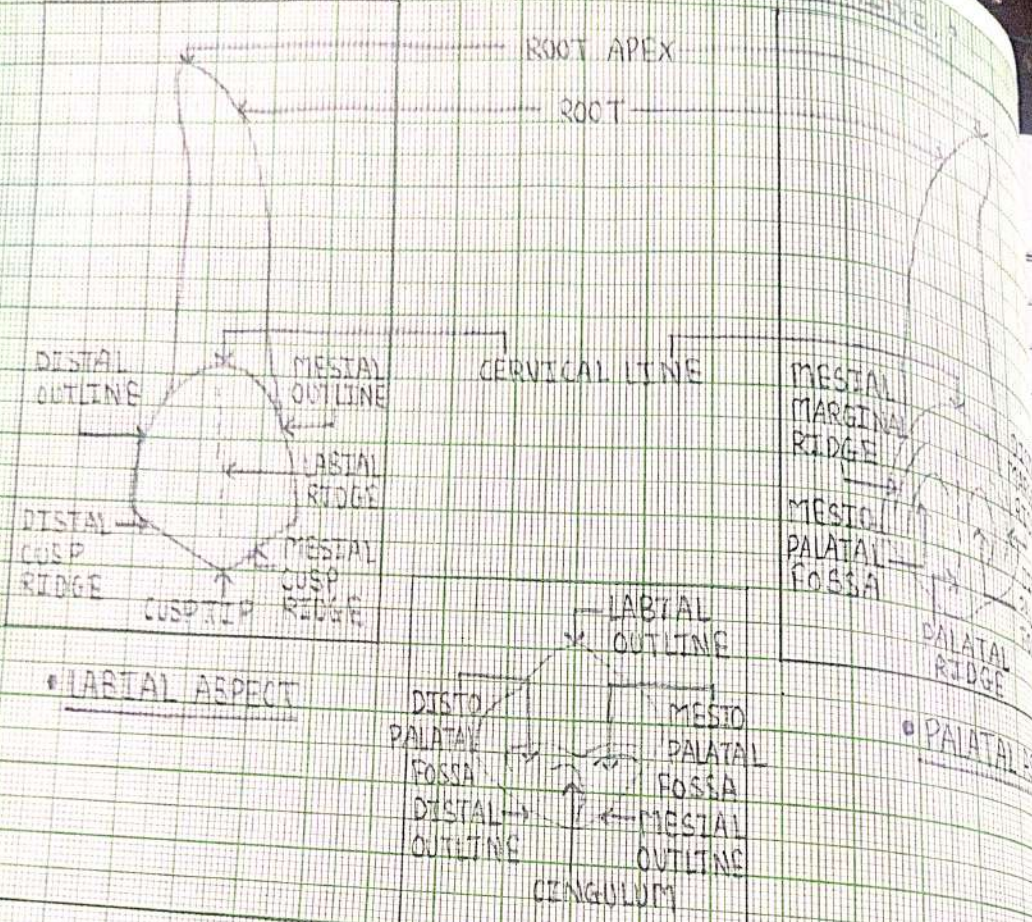 ROOT APEX
ROOT
DISTAL
OUTLINE
MESIAL
OUTLINE
CERVICAL LINE
LABIAL
RIDGE
DISTAL
CUSP
RIDGE
CUSP TIP
MESIAL
CUSP
RIDGE
• LABIAL ASPECT
MESIAL
MARGINAL
RIDGE
MESIO
PALATAL
FOSSA
PALATAL
RIDGE
• PALATAL
LABIAL
OUTLINE
DISTO
PALATAL
FOSSA
MESIO
PALATAL
FOSSA
DISTAL
OUTLINE
MESIAL
OUTLINE
CINGULUM